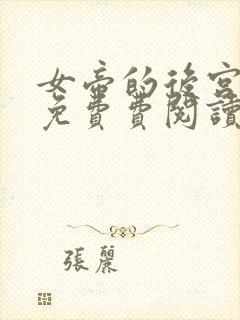 女帝的後宮
免費費閱讀
張麗